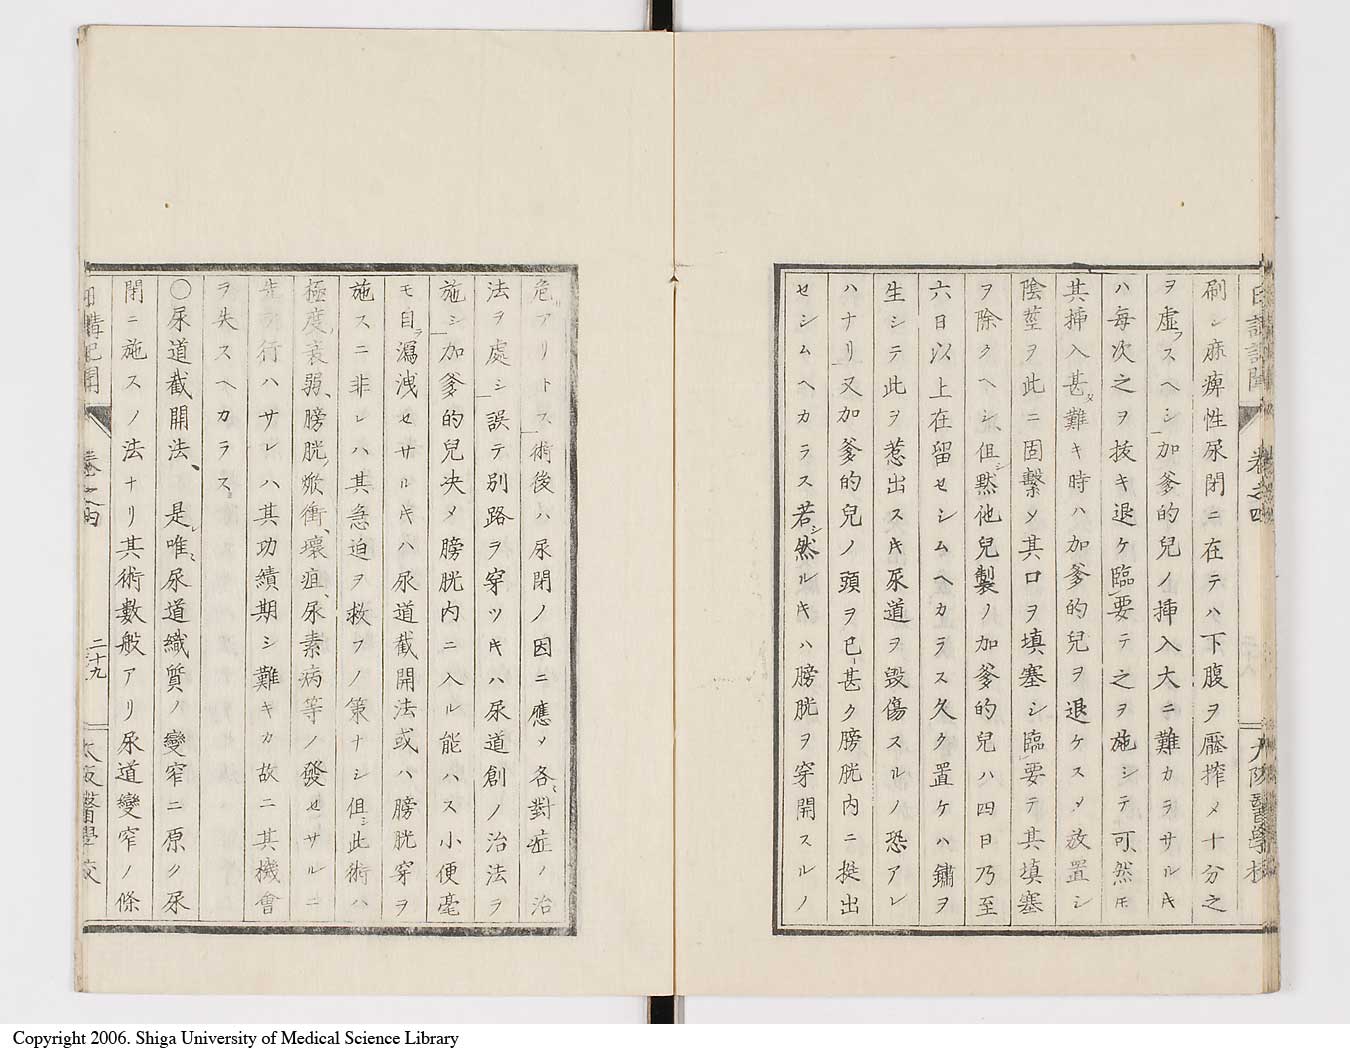 日講記聞 卷之四 大阪醫學校
刷シ麻痺性尿閉ニ在テハ下腹ヲ壓搾メ十分之
ヲ虚フスヘシ加爹的兒ノ挿入大ニ難カラサルキ
ハ每次之ヲ拔キ退ケ臨要テ之ヲ施シテ可然𪜈
其挿入甚タ難キ時ハ加爹的兒ヲ退ケスメ放置シ
陰莖ヲ此ニ固繫メ其口ヲ填塞シ臨要テ其填塞
ヲ除クヘシ但シ黙他兒製ノ加爹的兒ハ四日乃至
六日以上在留セシムヘカラス久ク置ケハ鏽ヲ
生シテ此ヲ惹出スキ尿道ヲ毀傷スルノ恐アレ
ハナリ又加爹的兒ノ頭ヲ已甚ク膀胱內ニ挺出
セシムヘカラス若シ然ルキハ膀胱ヲ穿開スルノ
危フリトス術後ハ尿閉ノ因ニ應メ各對症ノ治
法ヲ處シ誤テ別路ヲ穿ツキハ尿道創ノ治法ヲ
施シ加爹的兒決メ膀胱內ニ入ル能ハス小便毫
モ自ラ瀉洩セサルキハ尿道截開法或ハ膀胱穿ヲ
施スニ非レハ其急迫ヲ救フノ策ナシ但シ此術ハ
極度衰弱、膀胱焮衝、壞疽、尿素病等ノ發セサルニ
先ヲ行ハサレハ其功績期シ難キカ故ニ其機會
ヲ失スヘカラス
〇尿道截開法、是レ唯尿道織質ノ變窄ニ原ク尿
閉ニ施スノ法ナリ其術數般アリ尿道變窄ノ條
日講記聞 卷之四 二十九 大阪醫學校
Copyright 2006. Shiga University of Medical Science Library